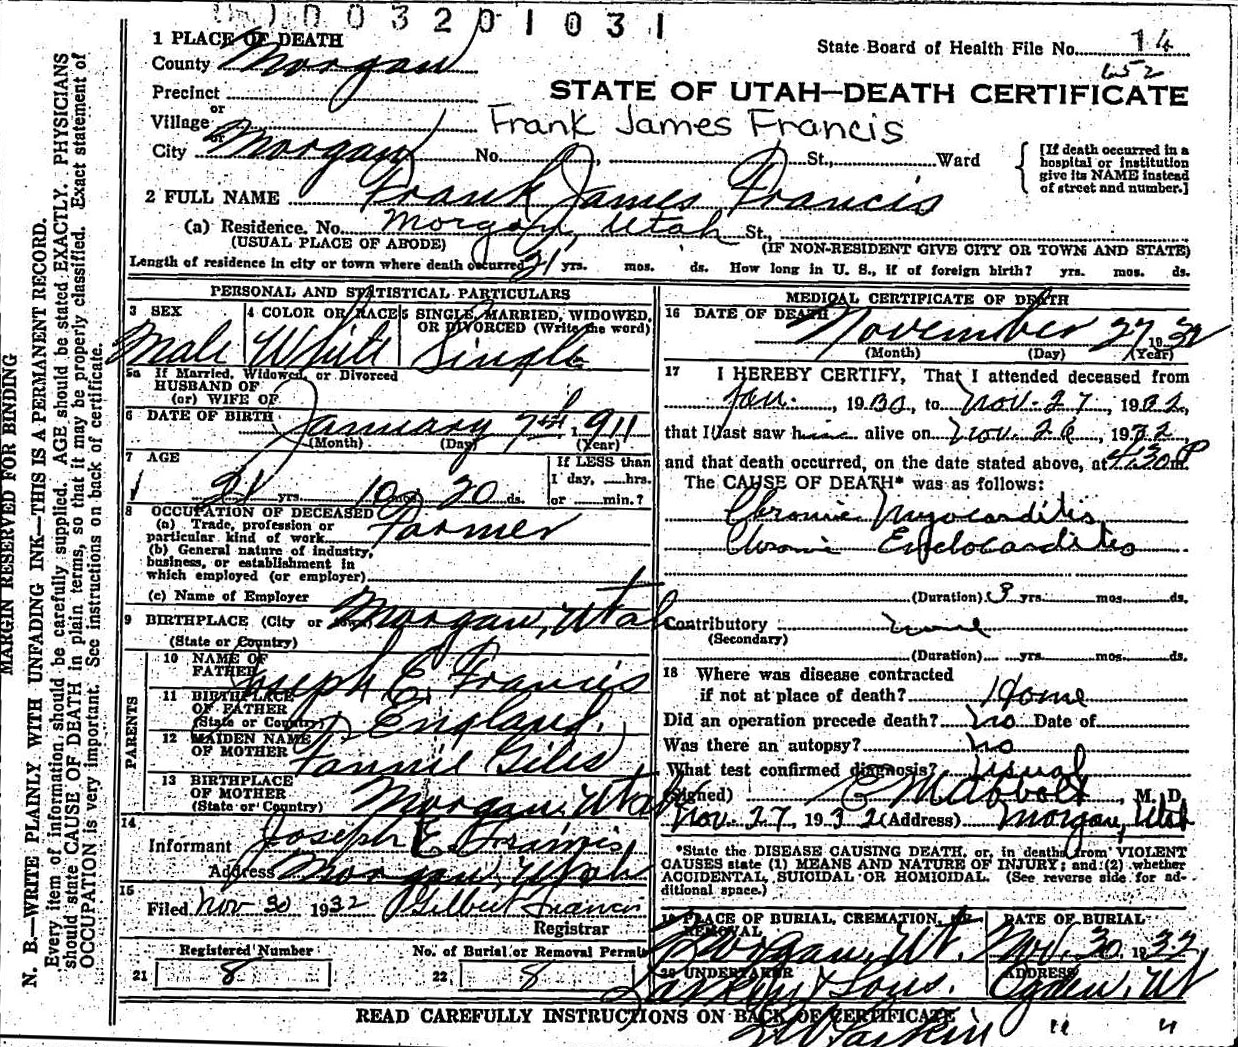 0 0 3 2 0 1 0 3 1
1 PLACE OF DEATH
State Board of Health File No. 14
652
County Morgan
Precinct
or
Village
or
City Morgan No. , St., Ward
STATE OF UTAH—DEATH CERTIFICATE
Frank James Francis
[If death occurred in a hospital or institution give its NAME instead of street and number.]
2 FULL NAME Frank James Francis
(a) Residence. No. Morgan, Utah St.,
(USUAL PLACE OF ABODE) (IF NON-RESIDENT GIVE CITY OR TOWN AND STATE)
Length of residence in city or town where death occurred 21 yrs. mos. ds. How long in U. S., if of foreign birth? yrs. mos. ds.
PERSONAL AND STATISTICAL PARTICULARS
3 SEX 4 COLOR OR RACE 5 SINGLE, MARRIED, WIDOWED, OR DIVORCED (Write the word)
Male White Single
5a If Married, Widowed, or Divorced
HUSBAND OF
(or) WIFE OF
6 DATE OF BIRTH January 7th 1911
(Month) (Day) (Year)
7 AGE
If LESS than 1 day, hrs. or min.?
21 yrs. 10 mos. 20 ds.
8 OCCUPATION OF DECEASED
(a) Trade, profession or particular kind of work Farmer
(b) General nature of industry, business, or establishment in which employed (or employer)
(c) Name of Employer
9 BIRTHPLACE (City or town) Morgan, Utah
(State or Country)
PARENTS
10 NAME OF FATHER Joseph E. Francis
11 BIRTHPLACE OF FATHER (State or Country) England.
12 MAIDEN NAME OF MOTHER Fannie Giles
13 BIRTHPLACE OF MOTHER (State or Country) Morgan, Utah
14
Informant Joseph E. Francis
Address Morgan, Utah
15
Filed Nov 30 1932 Gilbert Francis
Registrar
Registered Number No. of Burial or Removal Permit
21 8 22 8
MEDICAL CERTIFICATE OF DEATH
16 DATE OF DEATH November 27 1932
(Month) (Day) (Year)
17 I HEREBY CERTIFY, That I attended deceased from
Jan. , 1930, to Nov. 27, 1932,
that I last saw him alive on Nov. 26, 1932,
and that death occurred, on the date stated above, at 4:30 P m.
The CAUSE OF DEATH* was as follows:
Chronic Myocarditis,
Chronic Endocarditis
(Duration) 3 yrs. mos. ds.
Contributory none
(Secondary)
(Duration) yrs. mos. ds.
18 Where was disease contracted
if not at place of death? Home
Did an operation precede death? no Date of
Was there an autopsy? no
What test confirmed diagnosis? Usual
(Signed) , M. D.
Nov. 27, 1932 (Address) Morgan, Utah
*State the DISEASE CAUSING DEATH, or, in deaths from VIOLENT CAUSES state (1) MEANS AND NATURE OF INJURY; and (2) whether ACCIDENTAL, SUICIDAL OR HOMICIDAL. (See reverse side for additional space.)
19 PLACE OF BURIAL, CREMATION, or REMOVAL DATE OF BURIAL
Morgan, Ut. Nov. 30, 1932
20 UNDERTAKER ADDRESS
Larkin & Sons. Ogden, Ut
READ CAREFULLY INSTRUCTIONS ON BACK OF CERTIFICATE
Larkin " "
MARGIN RESERVED FOR BINDING
N. B.—WRITE PLAINLY WITH UNFADING INK—THIS IS A PERMANENT RECORD.
Every item of information should be carefully supplied. AGE should be stated EXACTLY. PHYSICIANS
should state CAUSE OF DEATH in plain terms, so that it may be properly classified. Exact statement of
OCCUPATION is very important. See instructions on back of certificate.